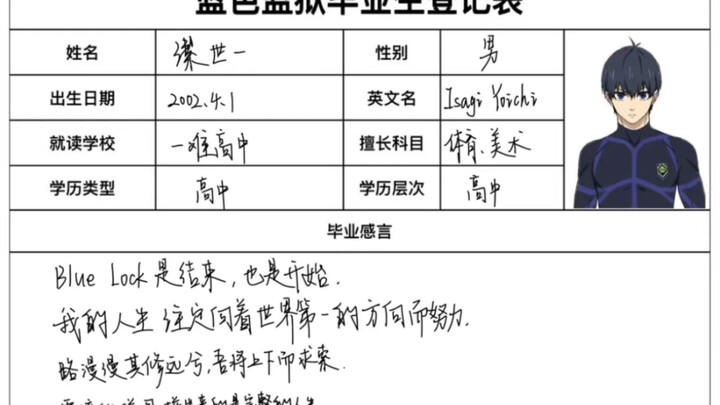 蓝色监狱毕业生登记表
姓名 潔世一 性别 男
出生日期 2002.4.1 英文名 Isagi Yoichi
就读学校 一难高中 擅长科目 体育、美术
学历类型 高中 学历层次 高中
毕业感言
Blue Lock 是结束,也是开始.
我的人生 注定向着世界第一的方向而努力.
路漫漫其修远兮,吾将上下而求索.
的是完整的人生